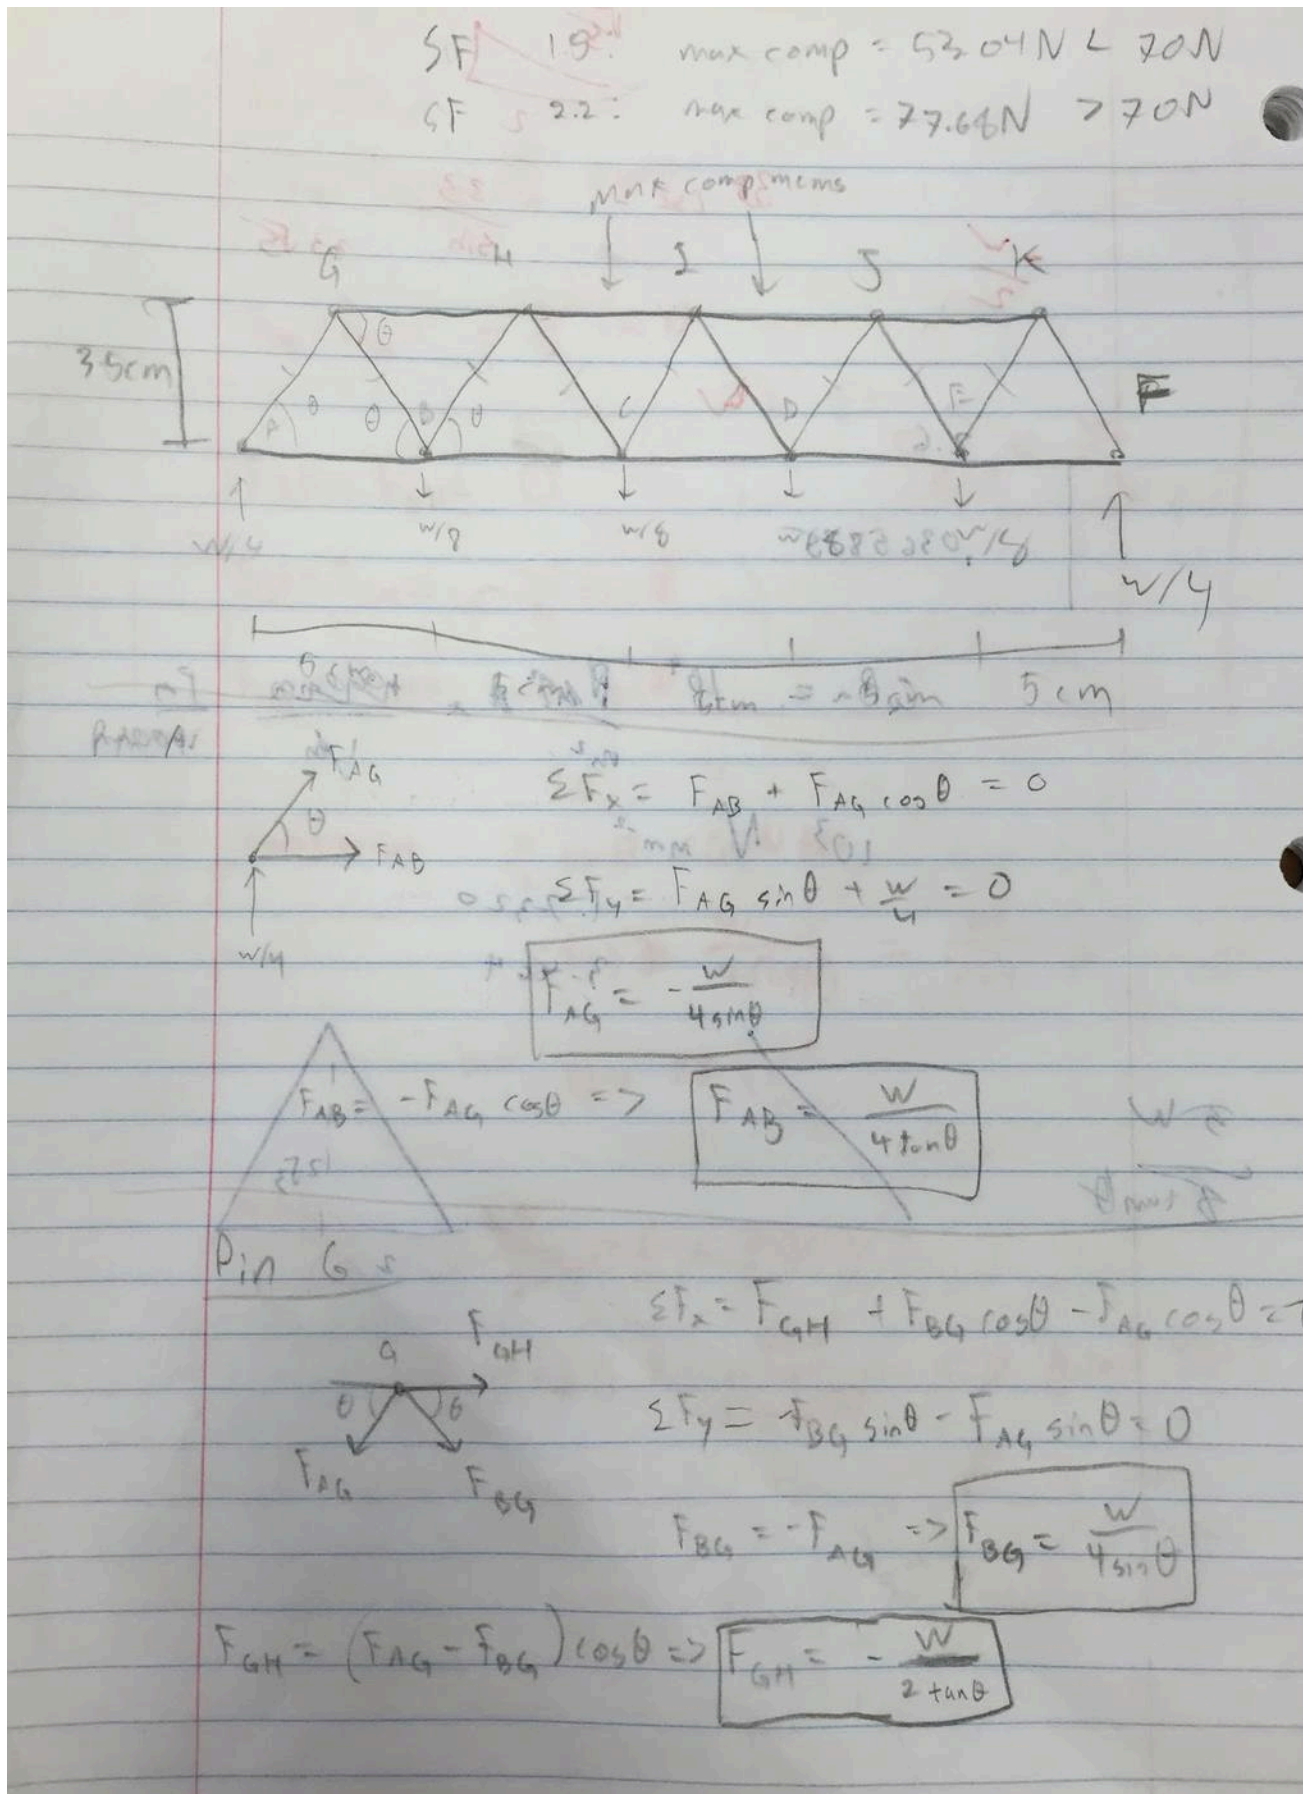 SF 1.5: max comp = 53.04N < 70N
SF 2.2: max comp = 77.68N > 70N
max comp mems
G H I J K
θ
3.5cm
θ θ θ
A B C D E F
w/4 w/8 w/8 w/8 w/4
5cm 5cm 5cm 5cm
F_AG
θ
F_AB
w/4
ΣF_x = F_AB + F_AG cosθ = 0
ΣF_y = F_AG sinθ + w/4 = 0
F_AG = - w/(4 sinθ)
F_AB = -F_AG cosθ => F_AB = w/(4 tanθ)
Pin G
G
F_GH
θ θ
F_AG
F_BG
ΣF_x = F_GH + F_BG cosθ - F_AG cosθ =
ΣF_y = -F_BG sinθ - F_AG sinθ = 0
F_BG = -F_AG => F_BG = w/(4 sinθ)
F_GH = (F_AG - F_BG) cosθ => F_GH = - w/(2 tanθ)